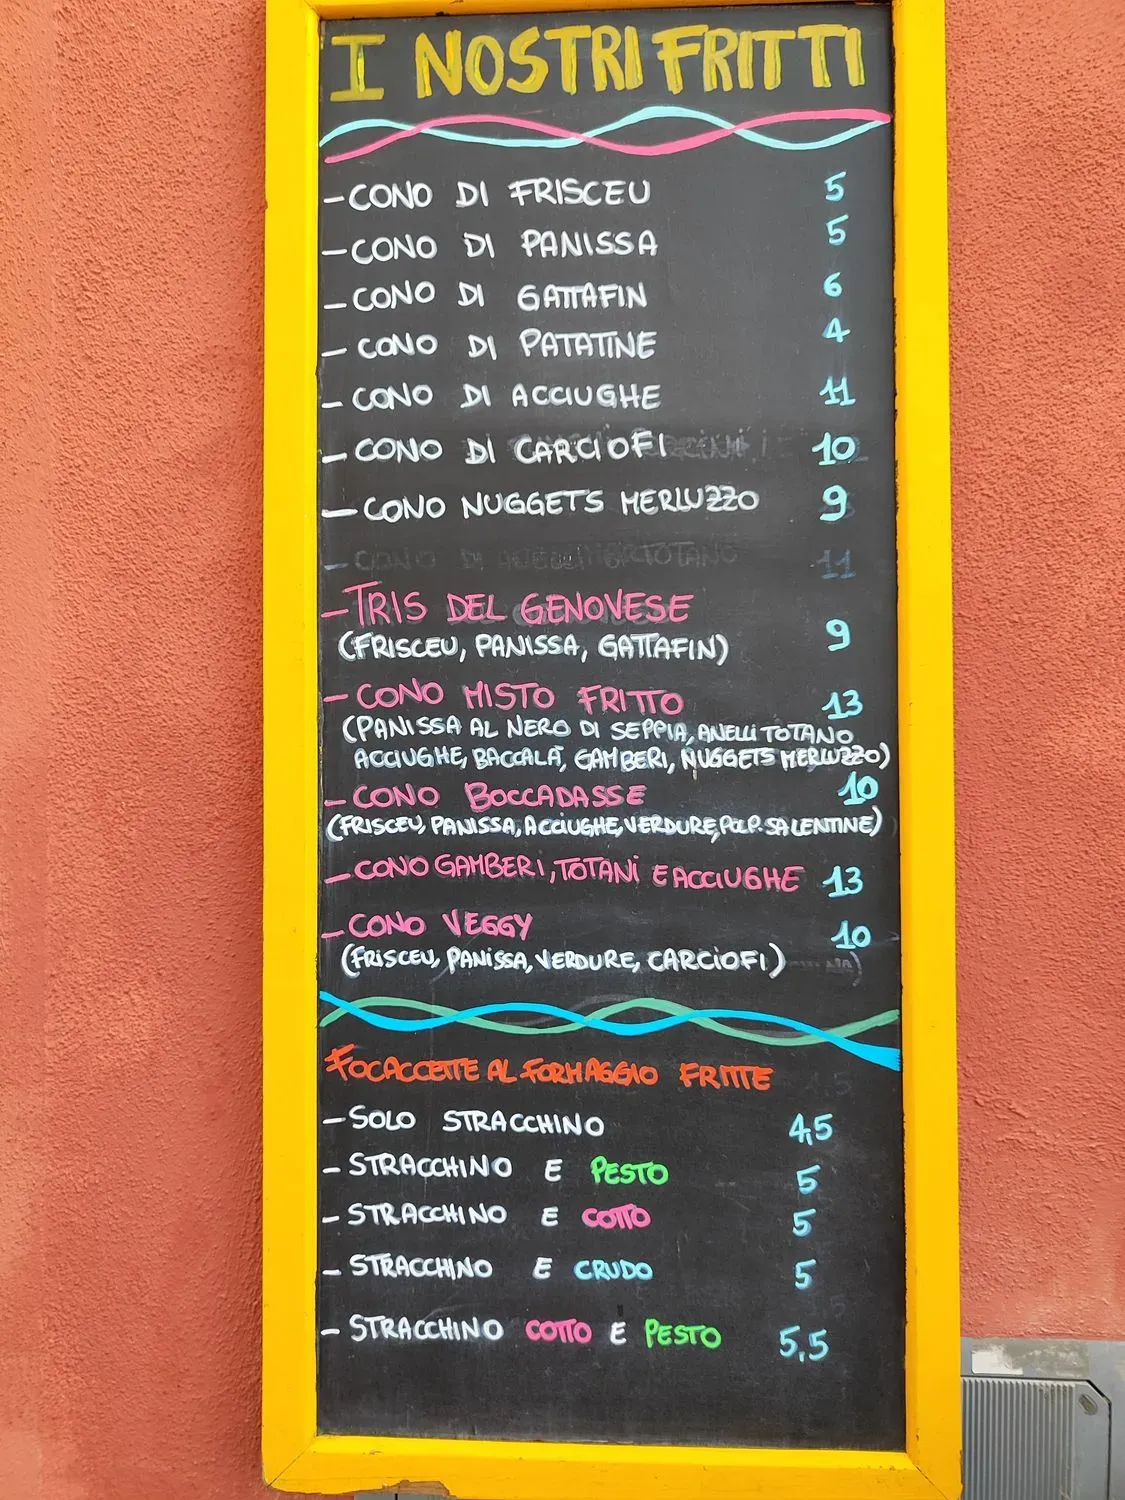 I NOSTRI FRITTI
- CONO DI FRISCEU 5
- CONO DI PANISSA 5
- CONO DI GATTAFIN 6
- CONO DI PATATINE 4
- CONO DI ACCIUGHE 11
- CONO DI CARCIOFI 10
- CONO NUGGETS MERLUZZO 9
- CONO DI ANELLI TOTANO 11
- TRIS DEL GENOVESE
(FRISCEU, PANISSA, GATTAFIN) 9
- CONO MISTO FRITTO 13
(PANISSA AL NERO DI SEPPIA, ANELLI TOTANO
ACCIUGHE, BACCALA', GAMBERI, NUGGETS MERLUZZO)
- CONO BOCCADASSE 10
(FRISCEU, PANISSA, ACCIUGHE, VERDURE, POLP. SALENTINE)
- CONO GAMBERI, TOTANI E ACCIUGHE 13
- CONO VEGGY 10
(FRISCEU, PANISSA, VERDURE, CARCIOFI)
FOCACCETTE AL FORMAGGIO FRITTE
- SOLO STRACCHINO 4,5
- STRACCHINO E PESTO 5
- STRACCHINO E COTTO 5
- STRACCHINO E CRUDO 5
- STRACCHINO COTTO E PESTO 5,5